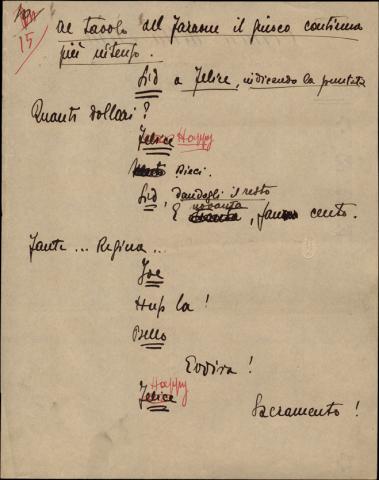 15
al tavolo del Faraone il giuoco continua
più intenso.
Sid a Felice, indicando la puntata
Quanti dollari?
Felice Happy
Dieci.
Sid, dandogli il resto
novanta
E , fanno cento.
Fante... Regina...
Joe
Hup la!
Bello
Evviva!
Happy
Felice
Sacramento!